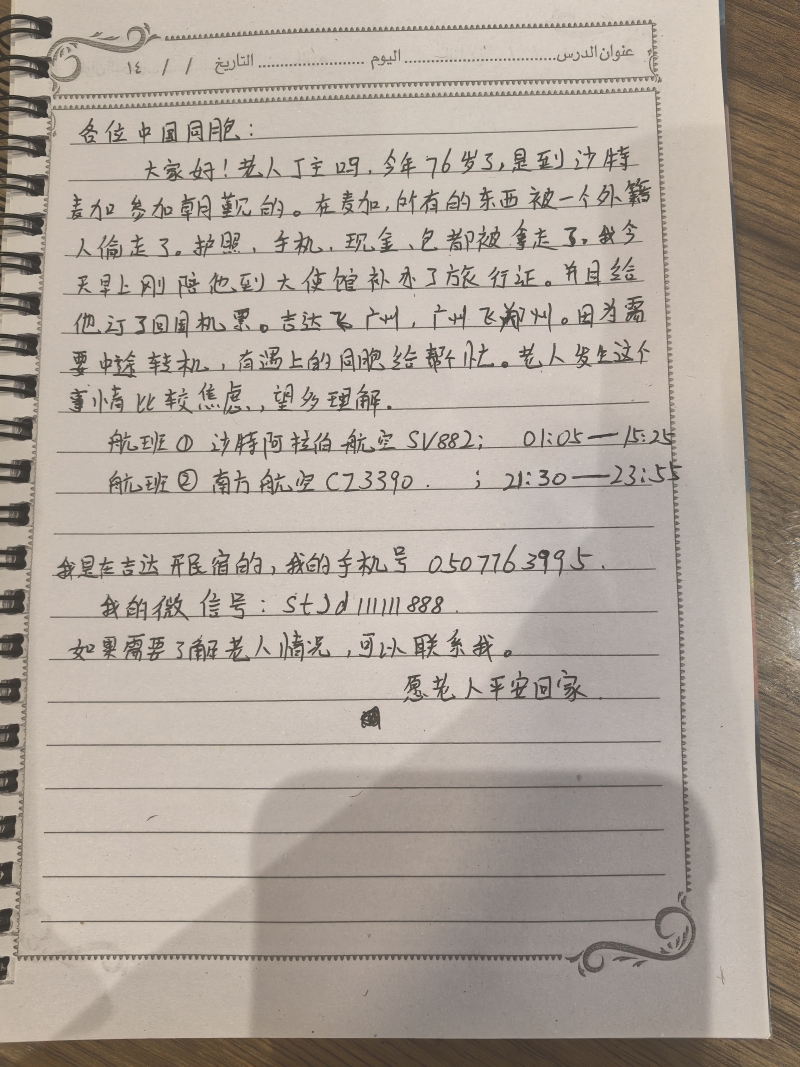 عنوان الدرس.......................................... اليوم ............................. التاريخ / / ١٤
各位中国同胞：
大家好！老人丁主吗，今年76岁了，是到沙特
麦加参加朝觐的。在麦加，所有的东西被一个外籍
人偷走了。护照、手机、现金、包都被拿走了。我今
天早上刚陪他到大使馆补办了旅行证。并且给
他订了回国机票。吉达飞广州，广州飞郑州。因为需
要中途转机，有遇上的同胞给帮个忙。老人发生这个
事情比较焦虑，望多理解.
航班① 沙特阿拉伯航空SV882； 01:05—15:25
航班② 南方航空CZ3390. ； 21:30—23:55
我是在吉达开民宿的，我的手机号 0507763995.
我的微信号：stJd111111888.
如果需要了解老人情况，可以联系我。
愿老人平安回家.